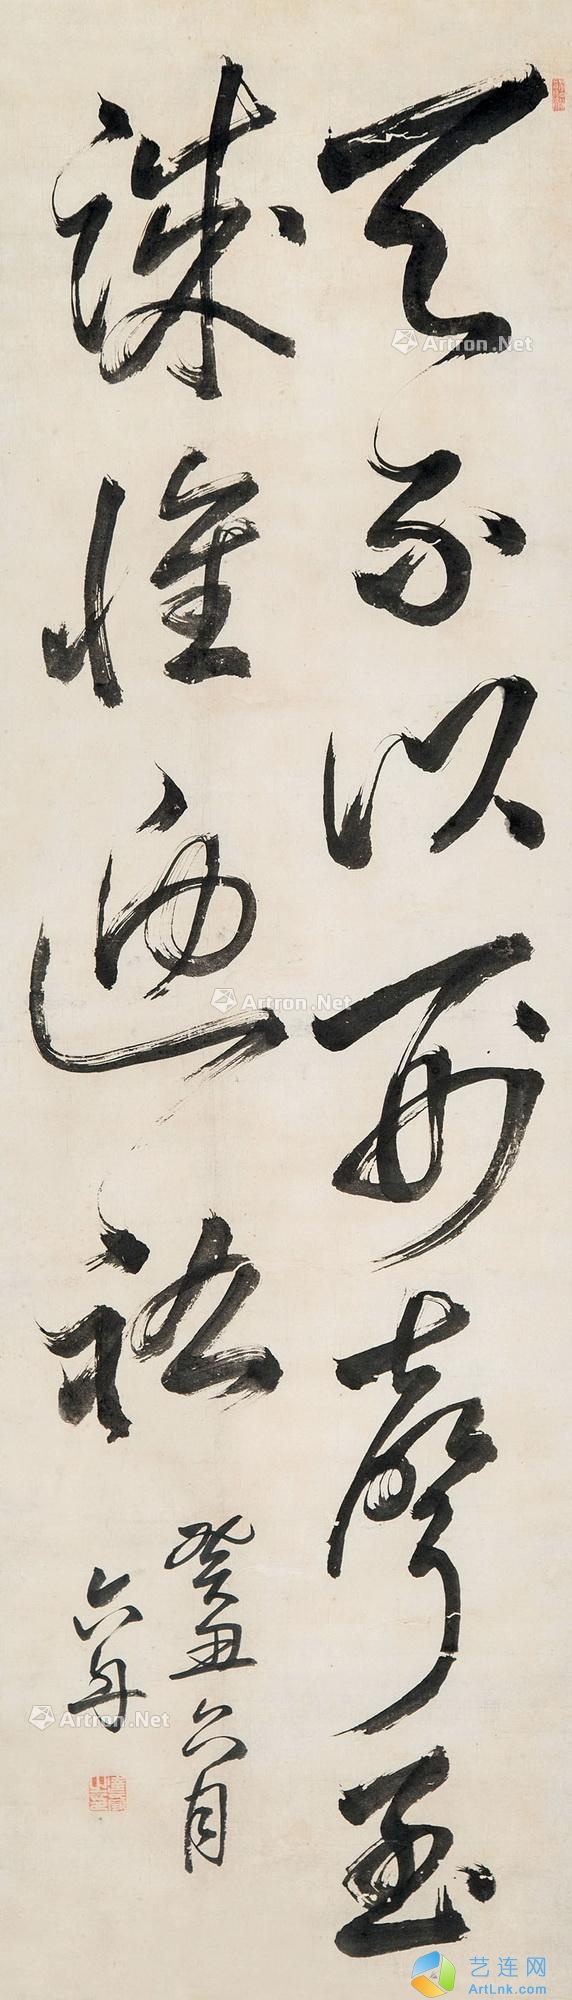 天不以形聲至
誠惟迪祐
癸丑六月
六舟
Artron.Net
Artron.Net
Artron.Net
艺连网
ArtLnk.com